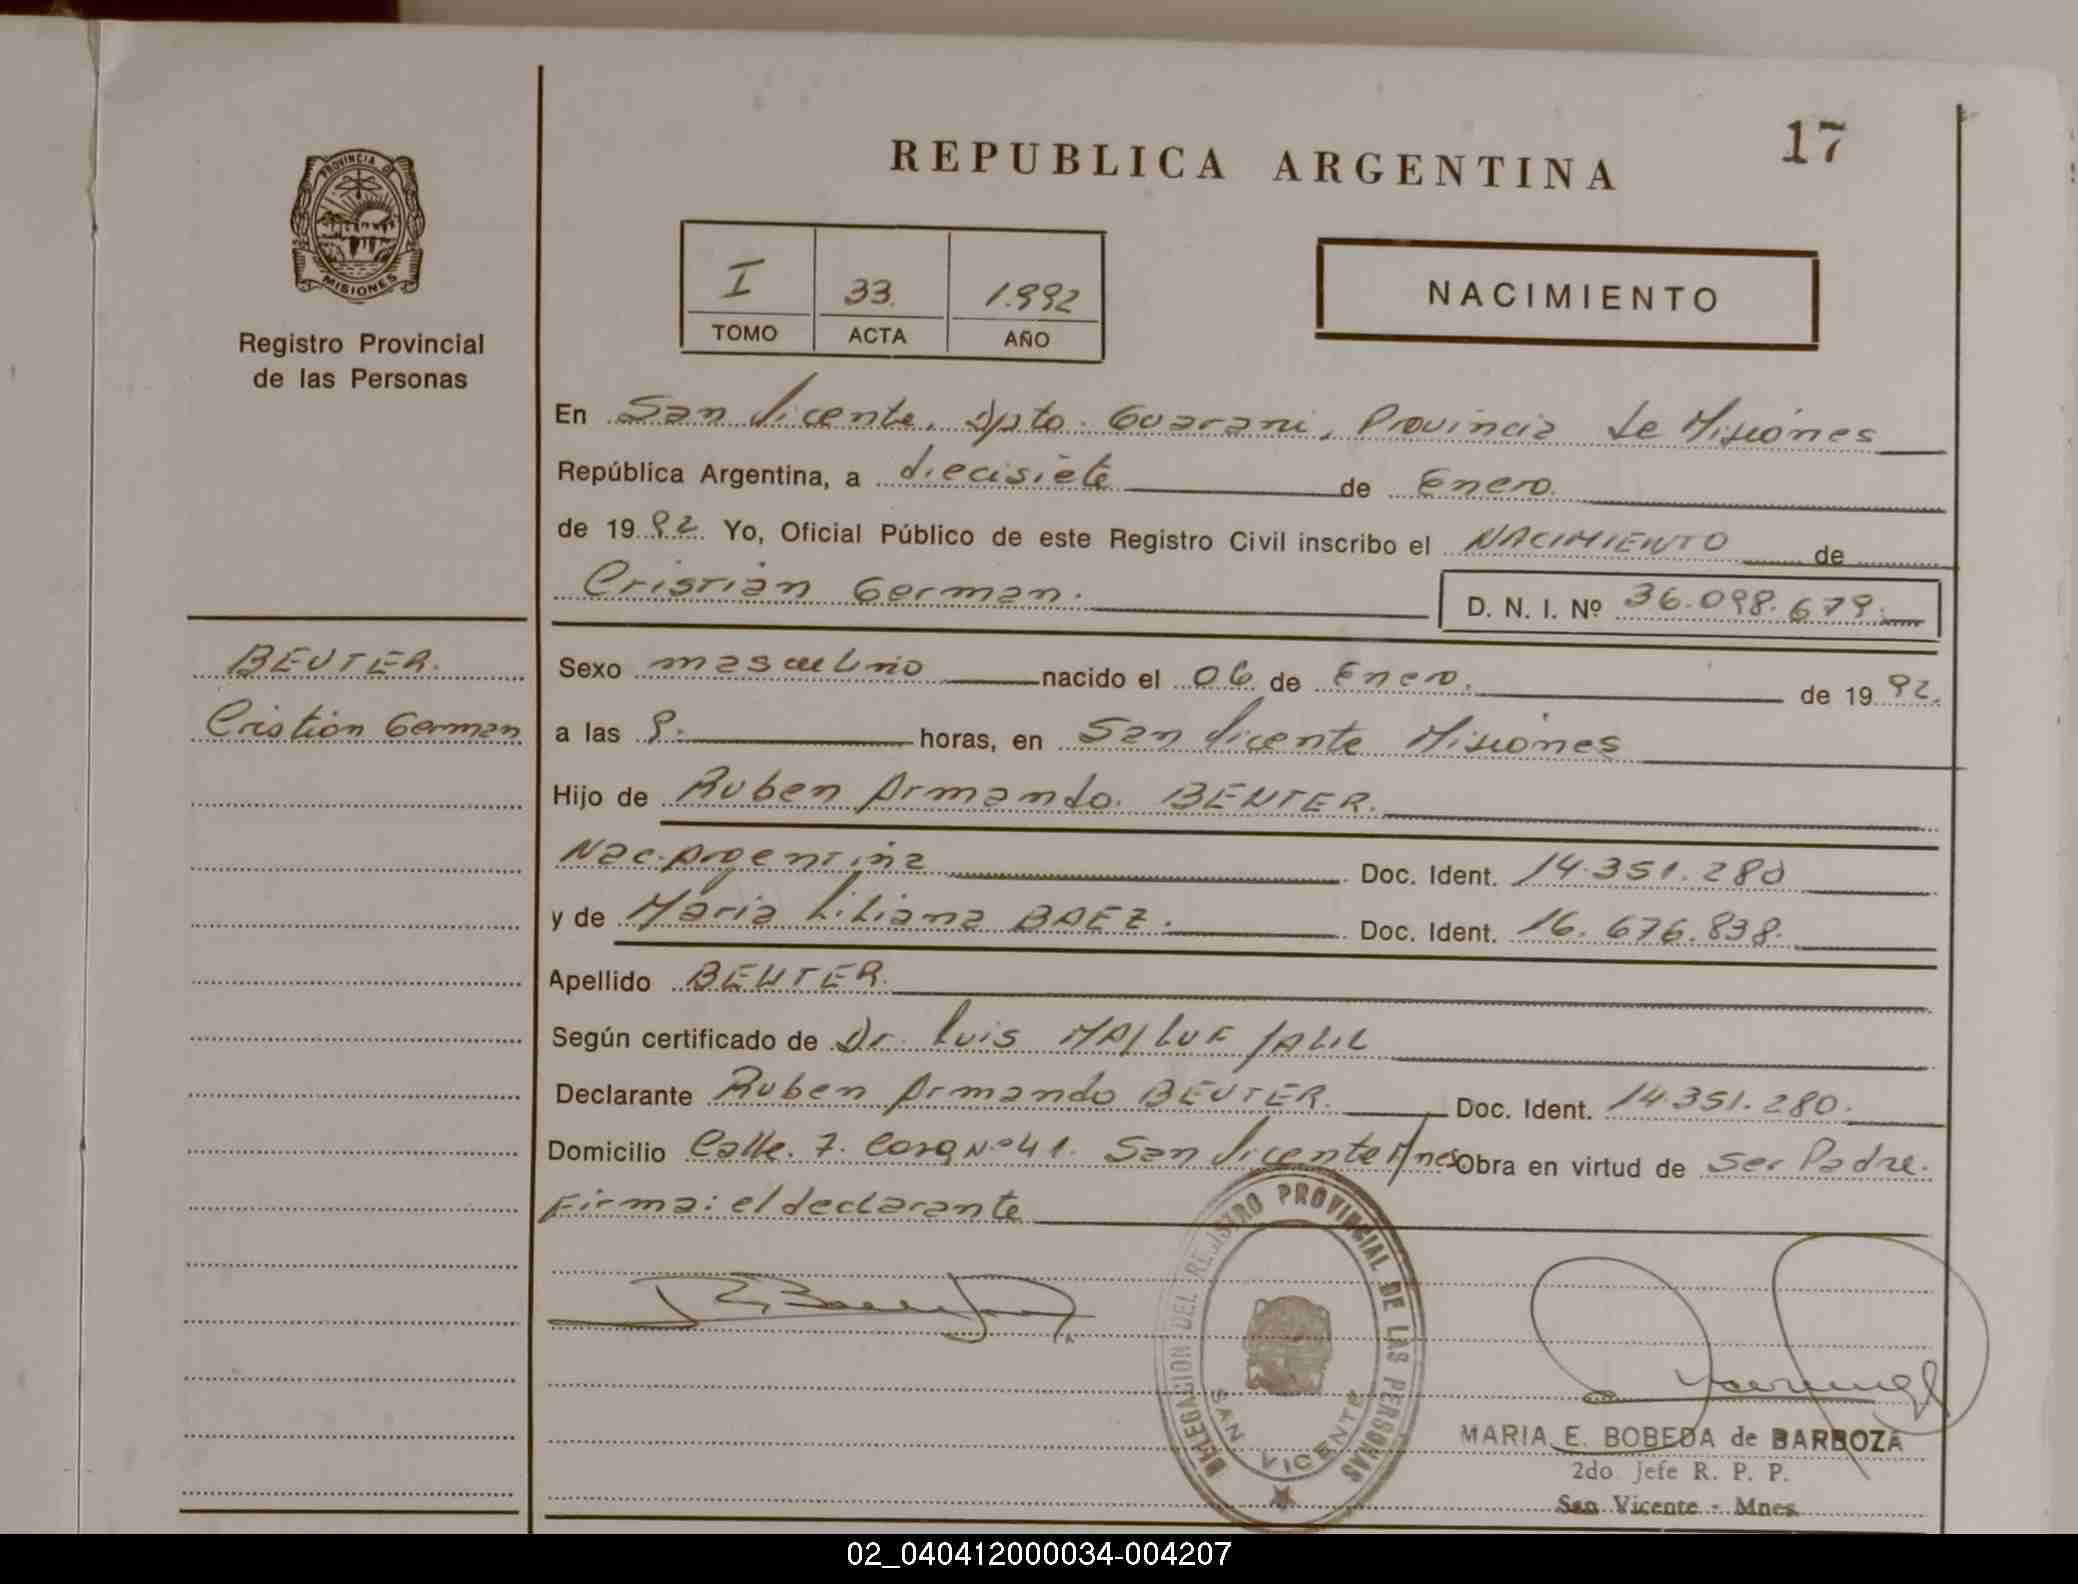 17
REPUBLICA ARGENTINA
PROVINCIA DE
MISIONES
Registro Provincial
de las Personas
I 33. 1.992
TOMO ACTA AÑO
NACIMIENTO
En San Vicente, Dpto. Guarani, Provincia de Misiones
República Argentina, a diecisiete de Enero.
de 1992 Yo, Oficial Público de este Registro Civil inscribo el NACIMIENTO de
Cristian German.
D. N. I. Nº 36.098.679.
BEUTER.
Cristian German
Sexo masculino nacido el 06 de Enero. de 1992.
a las 9. horas, en San Vicente Misiones
Hijo de Ruben Armando. BEUTER.
Nac. Argentina Doc. Ident. 14.351.280
y de Maria Liliana BAEZ. Doc. Ident. 16.676.838.
Apellido BEUTER.
Según certificado de Dr. Luis MAJLUF JALIL
Declarante Ruben Armando BEUTER. Doc. Ident. 14.351.280.
Domicilio Calle. 7. Casa Nº 41. San Vicente Mnes Obra en virtud de ser Padre.
Firma: el declarante
DELEGACION DEL REGISTRO PROVINCIAL DE LAS PERSONAS
SAN VICENTE
MARIA E. BOBEDA de BARBOZA
2do Jefe R. P. P.
San Vicente - Mnes.
02_040412000034-004207